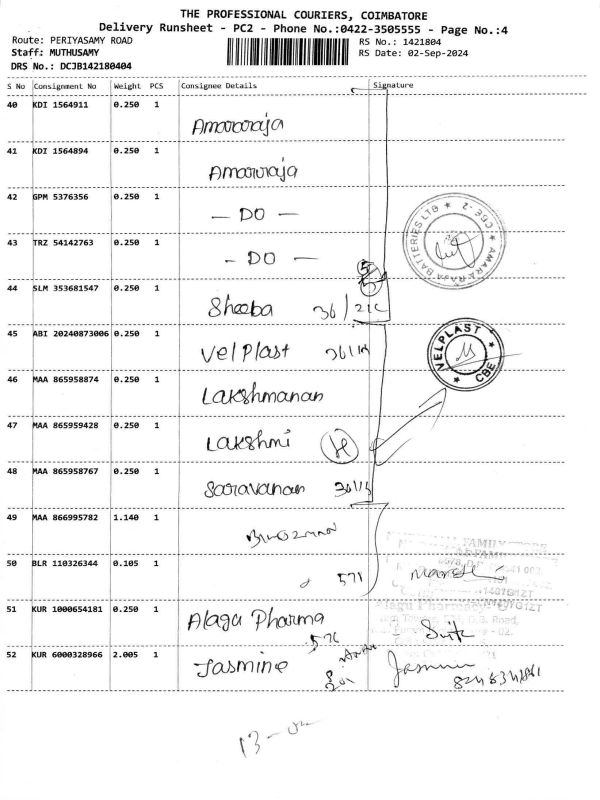 THE PROFESSIONAL COURIERS, COIMBATORE
Delivery Runsheet - PC2 - Phone No.:0422-3505555 - Page No.:4
Route: PERIYASAMY ROAD
RS No.: 1421804
Staff: MUTHUSAMY
RS Date: 02-Sep-2024
DRS No.: DCJB142180404
S No Consignment No Weight PCS Consignee Details Signature
40 KDI 1564911 0.250 1
Amararaja
41 KDI 1564894 0.250 1
Amararaja
42 GPM 5376356 0.250 1
- DO -
43 TRZ 54142763 0.250 1
- DO -
AMARA RAJA BATTERIES LTD * CBE-2 *
44 SLM 353681547 0.250 1
Sheeba 36/21C
45 ABI 20240873006 0.250 1
Vel Plast
VELPLAST * CBE *
46 MAA 865958874 0.250 1
Lakshmanan
47 MAA 865959428 0.250 1
Lakshmi
48 MAA 865958767 0.250 1
Saravanan
49 MAA 866995782 1.140 1
FAMILY
50 BLR 110326344 0.105 1
571
51 KUR 1000654181 0.250 1
Alagu Pharma
Alagu Pharmacy
52 KUR 6000328966 2.005 1
Jasmine